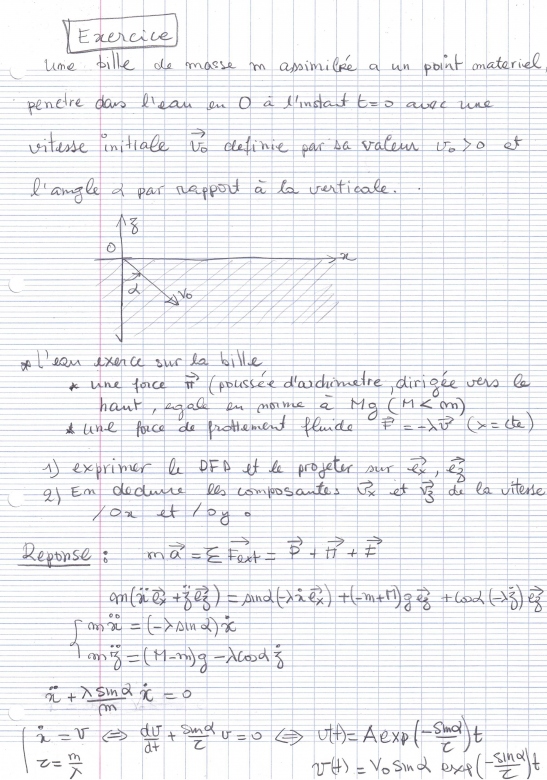 Exercice
Une bille de masse m assimilée a un point materiel,
penetre dans l'eau en O à l'instant t=0 avec une
vitesse initiale v₀→ definie par sa valeur v₀>0 et
l'angle α par rapport à la verticale.
z
O
x
α
v₀
* l'eau exerce sur la bille
* une force π→ (poussée d'archimetre, dirigée vers le
haut, egale en norme à Mg (M<m)
* une force de frottement fluide F→ = -λv→ (λ=cte)
1) exprimer le DFD et le projeter sur ex→, ez→
2) En deduire les composantes vx→ et vz→ de la vitesse
/Ox et /Oy.
Reponse : m a→ = Σ Fext→ = P→ + π→ + F→
m(ẍ ex→ + z̈ ez→) = sinα(-λẋ ex→) + (-m+M)g ez→ + cosα(-λż) ez→
{ mẍ = (-λ sinα) ẋ
mz̈ = (M-m)g - λcosα ż
ẍ + λ sinα/m ẋ = 0
{ ẋ = v ⇔ dv/dt + sinα/τ v = 0 ⇔ v(t) = A exp(-sinα/τ)t
τ = m/λ v(t) = V₀ sinα exp(-sinα/τ)t